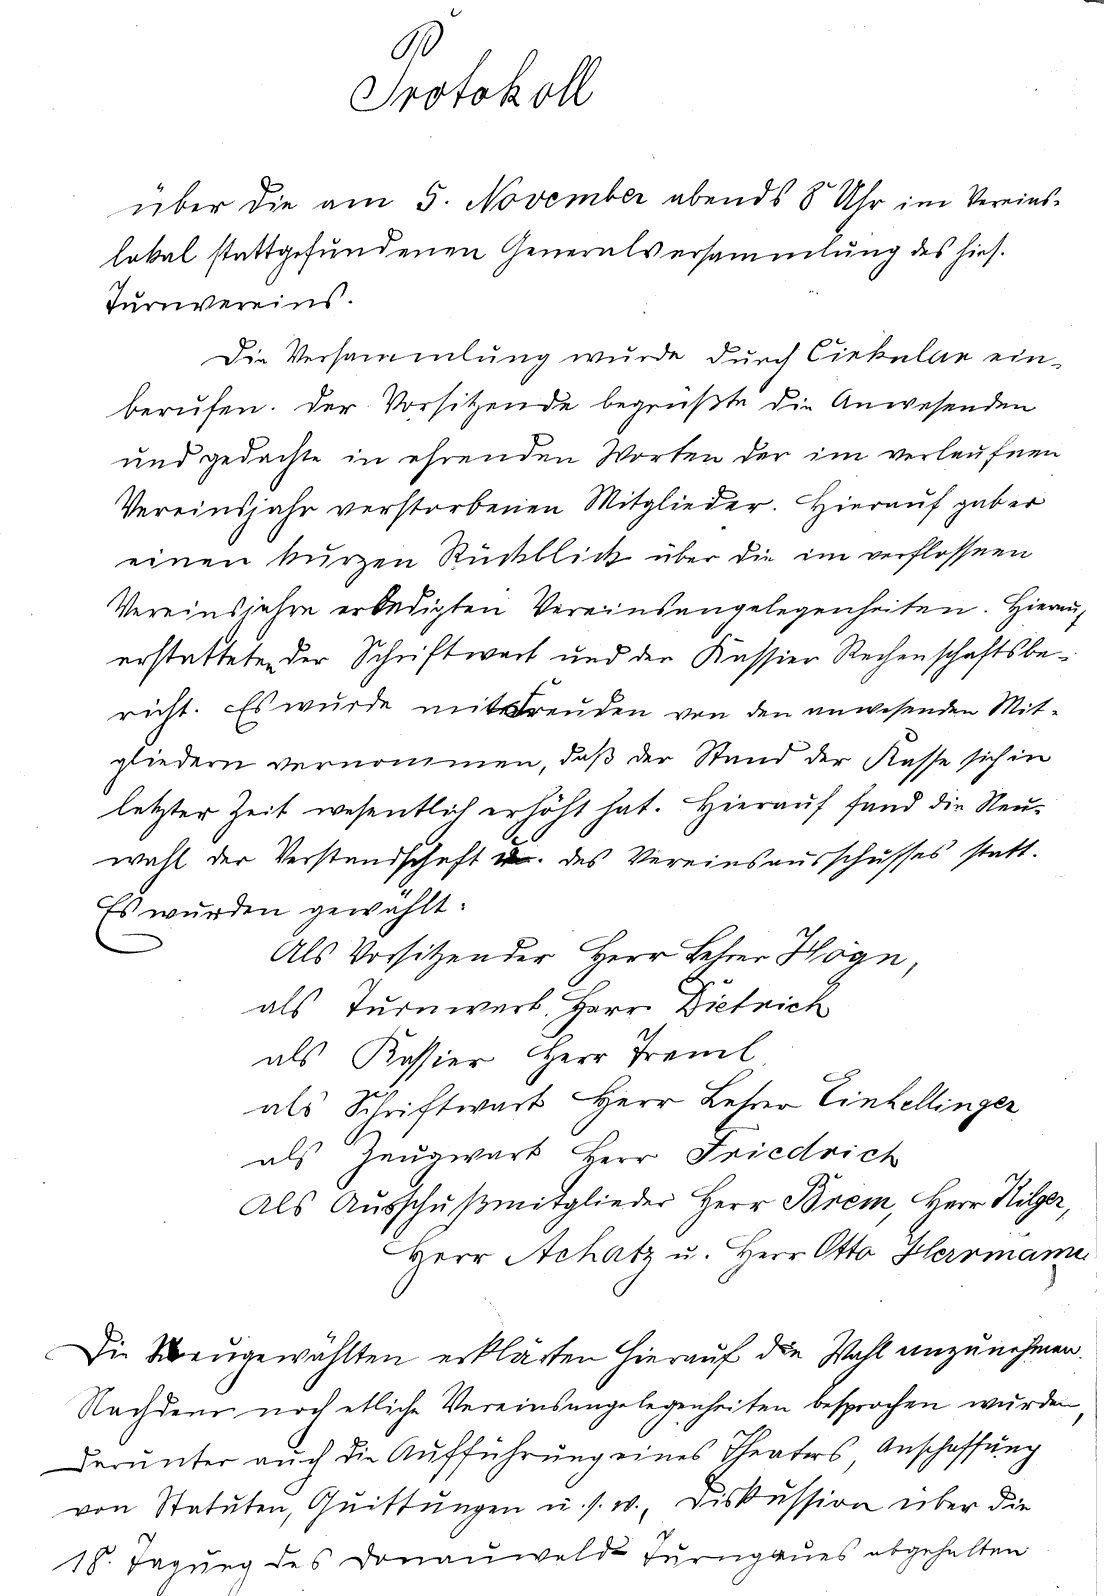 Protokoll
über die am 5. November abends 8 Uhr im Vereins-
lokal stattgefundenen Generalversammlung des hies.
Turnvereins.
Die Versammlung wurde durch Cirkular ein-
berufen. Der Vorsitzende begrüßte die Anwesenden
und gedachte in ehrenden Worten der im verlaufnen
Vereinsjahr verstorbenen Mitglieder. Hierauf gab er
einen kurzen Rückblick über die im verflossnen
Vereinsjahre erledigten Vereinsangelegenheiten. Hierauf
erstatteten der Schriftwart und der Kassier Rechenschaftsbe-
richt. Es wurde mit Freuden von den anwesenden Mit-
gliedern vernommen, daß der Stand der Kasse sich in
letzter Zeit wesentlich erhöht hat. Hierauf fand die Neu-
wahl der Vorstandschaft u. des Vereinsausschusses statt.
Es wurden gewählt:
Als Vorsitzender Herr Lehrer Högn,
als Turnwart Herr Dietrich
als Kassier Herr Treml
als Schriftwart Herr Lehrer Einhellinger
als Zeugwart Herr Friedrich
Als Ausschußmitglieder Herr Brem, Herr Kilger,
Herr Achatz u. Herr Otto Herrmann.
Die Neugewählten erklärten hierauf die Wahl anzunehmen.
Nachdem noch etliche Vereinsangelegenheiten besprochen wurden,
darunter auch die Aufführung eines Theaters, Anschaffung
von Statuten, Quittungen u. s. w., Diskussion über die
18. Tagung des Donauwald Turngaues abgehalten